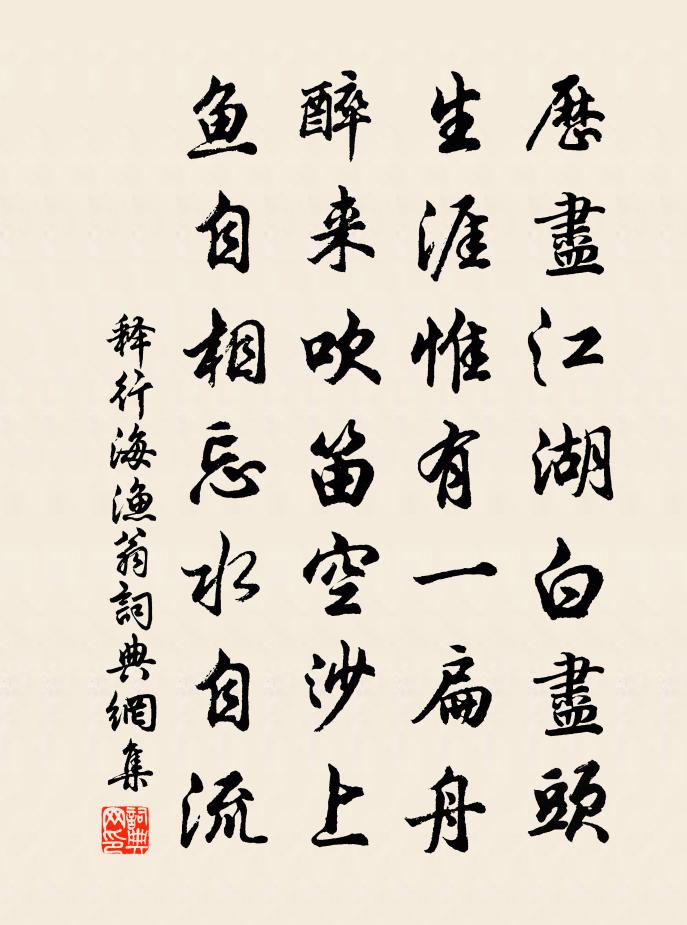 歷盡江湖白盡頭
生涯惟有一扁舟
醉来吹笛空沙上
魚自相忘水自流
释行海漁翁詞典網集
詞典网印